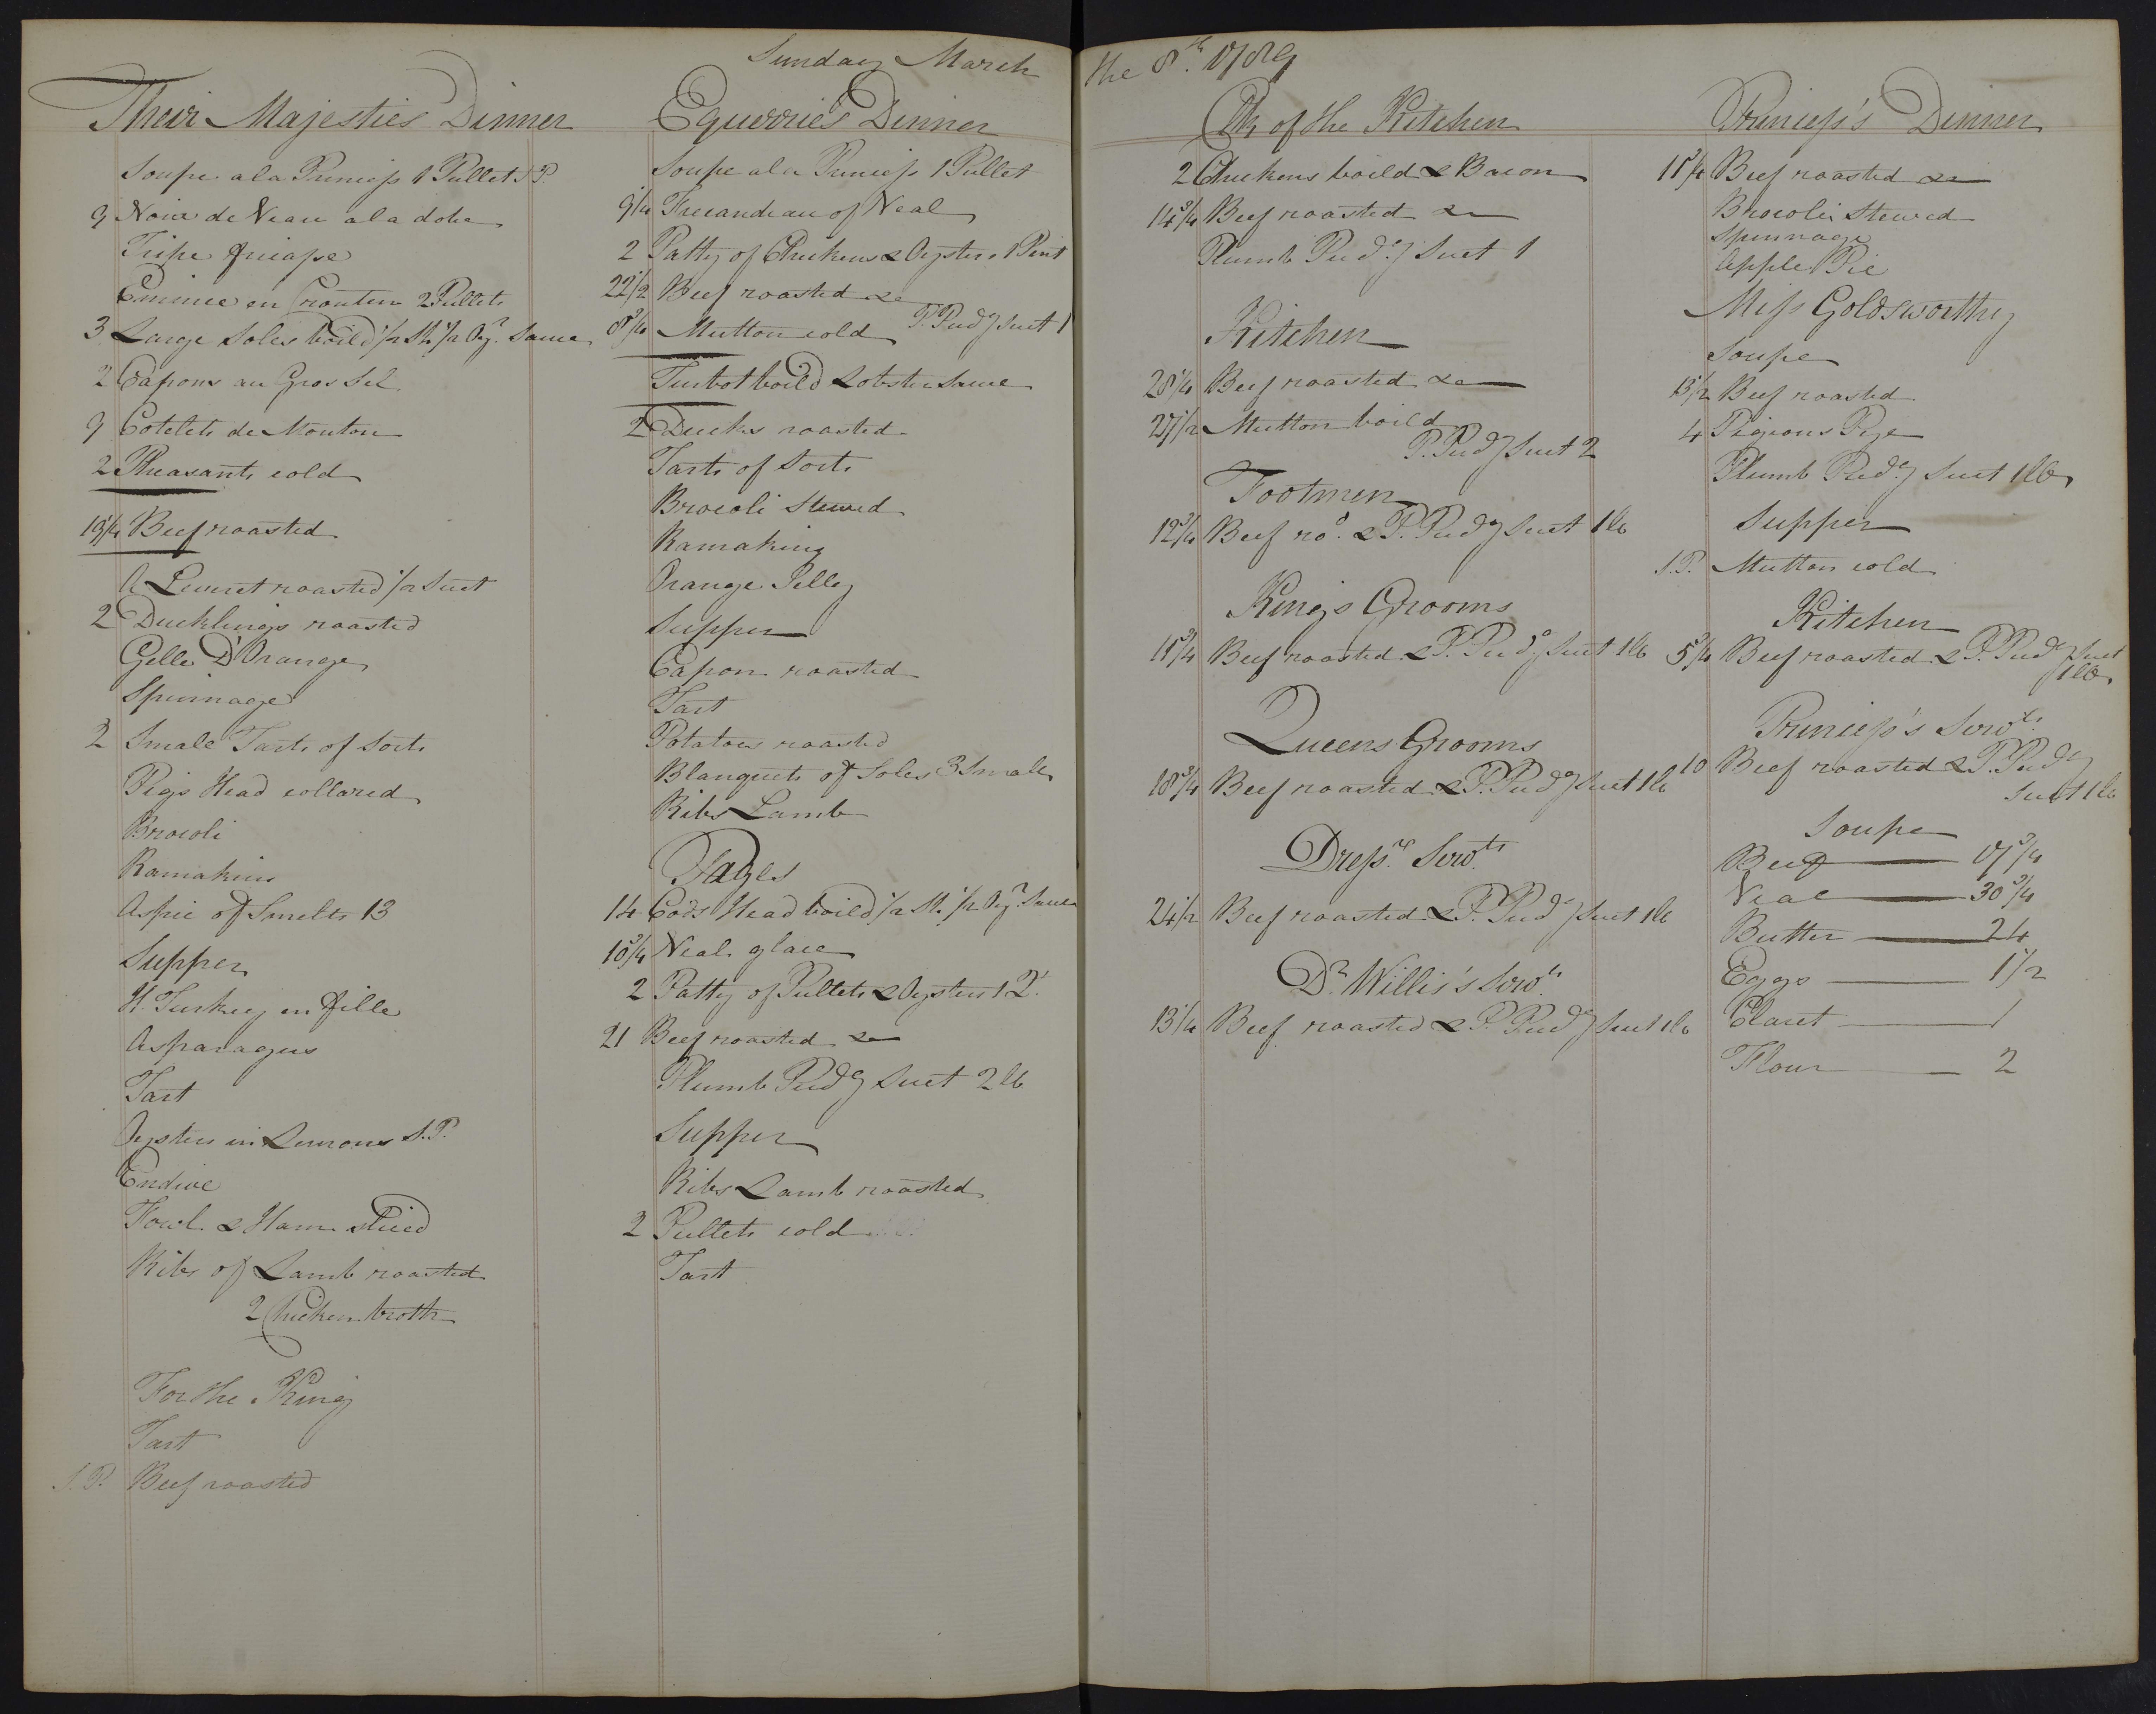 Sunday March the 8th. 1789
Their Majesties Dinner
Soupe a la Princess 1 Pullet S.P.
9 Noix de Veau a la dobe
Tripe fricasse
Emince en Crouten 2 Pullets
3 Large Soles boild 1/2 Sh: 1/2 Oyr. Sauce
2 Capons au Gros Sel
9 Cotelets de Mouton
2 Pheasants cold
19 1/4 Beef roasted
A Leveret roasted 1/2 Suet
2 Ducklings roasted
Gelle D'Orange
Spinnage
2 Smale Tarts of Sorts
Pigs Head collared
Brocoli
Ramakins
Aspic of Smelts 13
Supper
H. Turkey en fille
Asparagus
Tart
Oysters in Lemons S.P.
Endive
Fowl & Ham sliced
Ribs of Lamb roasted
2 Chicken broth
For the King
Tart
S.P. Beef roasted
Equerries Dinner
Soupe a la Princess 1 Pullet
9 1/4 Fricandeau of Veal
2 Patty of Chickens & Oysters 1 Pint
22 1/2 Beef roasted &c
8 3/4 Mutton cold P. Pudg Suet 1
Turbot boild Lobster Sauce
2 Ducks roasted
Tarts of Sorts
Brocoli Stewed
Ramaking
Orange Jelley
Supper
Capon roasted
Tart
Potatoes roasted
Blanquets of Soles 3 Smale
Ribs Lamb
Pages
14 Cods Head boild 1/2 Sh: 1/2 Oyr. Sauce
10 3/4 Veal glace
2 Patty of Pullets & Oysters 1 Q.
21 Beef roasted &c
Plumb Pudg Suet 2 lb
Supper
Ribs Lamb roasted
2 Pullets cold
Tart
Ck of the Kitchen
2 Chickens boild & Bacon
14 3/4 Beef roasted &c
Plumb Pudg Suet 1
Kitchen
28 1/4 Beef roasted &c
27 1/2 Mutton boild
P. Pudg Suet 2
Footmen
12 3/4 Beef rod. & P. Pudg Suet 1 lb
Kings Grooms
18 3/4 Beef roasted & P. Pudg Suet 1 lb
Queens Grooms
18 3/4 Beef roasted & P. Pudg Suet 1 lb
Dressrs Servts
24 1/2 Beef roasted & P. Pudg Suet 1 lb
Dr. Willis's Servts
13 1/4 Beef roasted & P. Pudg Suet 1 lb
Princess's Dinner
Beef roasted &c
Brocoli Stewed
Spinnage
Apple Pie
Miss Goldsworthy
Soupe
13 1/2 Beef roasted
4 Pigeons Pye
Plumb Pudg Suet 1 lb
Supper
S.P. Mutton cold
Kitchen
5 3/4 Beef roasted & P. Pudg Suet
1 lb
Princess's Servts
10 Beef roasted & P. Pudg
Suet 1 lb
Soupe
Beef 17 3/4
Veal 30 3/4
Butter 24
Eggs 1 1/2
Claret 1
Flour 2